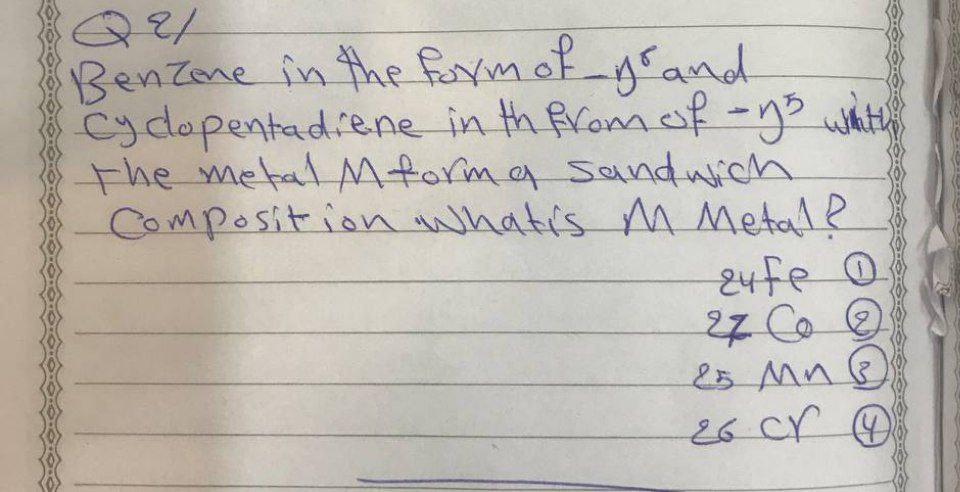 Q 2/
Benzene in the form of -η⁶ and
Cyclopentadiene in th from of -η⁵ with
the metal M form a sandwich
Composition what is M Metal?
24 Fe ①
27 Co ②
25 Mn ③
26 Cr ④